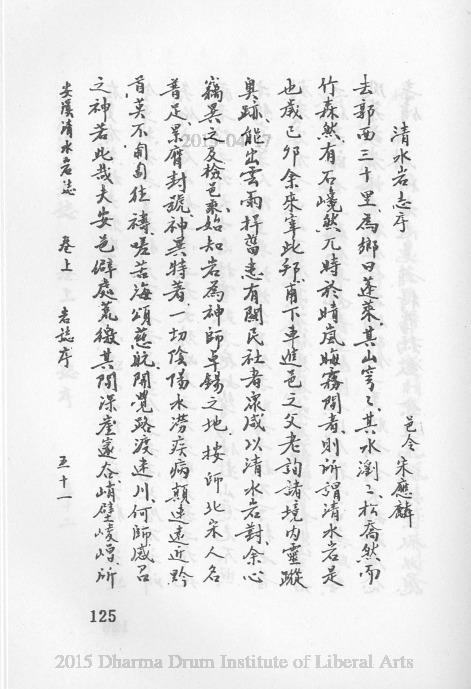 清水岩志序
邑令宋應麟
去郭西三十里為鄉曰蓬萊其山穹穹其水瀏瀏松喬然而
竹森然有石嶢然兀時於晴嵐晦霧間者則所謂清水岩是
也歲己卯余來宰此邦甫下車進邑之父老詢諸境內靈蹤
奧跡能出雲雨捍菑患有關民社者眾咸以清水岩對余心
竊異之及檢邑乘始知岩為神師卓錫之地按師北宋人名
普足累膺封號神異特著一切陰陽水澇疾病顛連遠近黔
首莫不匍匐往禱嗟苦海頌慈航開覺路渡迷川何師威召
之神若此哉夫安邑僻處荒徼其間深崖邃谷峭壁崚嶒所
安溪清水岩志 卷上 岩誌序 五十一
125
2015-04-27
2015 Dharma Drum Institute of Liberal Arts